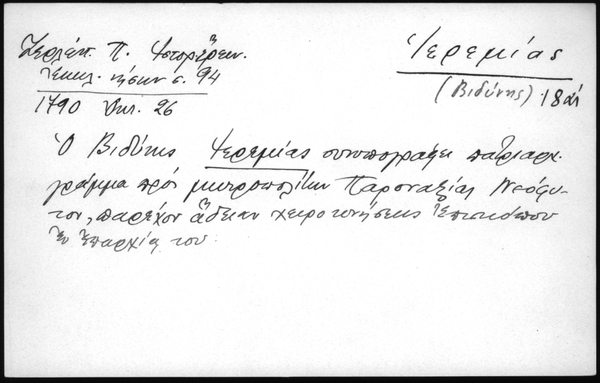 Ζερλέντ. Π. Ἱστορ. ἔρευν.
Ἐκκλ. νήσων σ. 94
1790 Ὀκτ. 26
Ἱερεμίας
(Βιδύνης) 18ος
Ὁ Βιδύνης Ἱερεμίας συνυπογράφει πατριαρχ.
γράμμα πρός μητροπολίτην Παροναξίας Νεόφυ-
τον, παρέχον ἄδειαν χειροτονήσεως ἐπισκόπου
ἐν ἐπαρχίᾳ του.